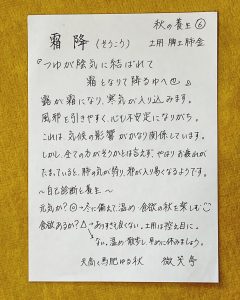 秋の養生⑥
霜降(そうこう) 土用 脾土肺金
『つゆが陰気に結ばれて
霜となりて降るゆへ也』
露が霜になり、寒気が入り込みます。
風邪を引きやすく、心も不安定になりがち。
これは、気候の影響がかなり関係しています。
しかし、全ての方がそうかとは言えず、やはりお疲れが
たまっていると、肺の気が弱り、邪が入り易くなるようです。
〜自己診断と養生〜
元気か?◎→冬に備えて温め・食欲の秋を楽しむ
食欲あるか?△→あっさりと良くない。土用は控え目に。
ない。温め・散歩し、早めに休みましょう。
天高く馬肥ゆる秋 微笑亭